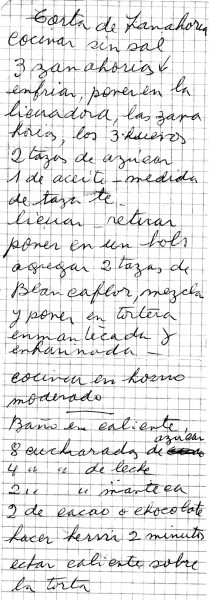 Torta de Zanahoria
cocinar sin sal
3 zanahorias
enfriar, poner en la
licuadora, las zana
horias, los 3 huevos
2 tazas de azúcar
1 de aceite - medida
de taza te -
licuar - retirar
poner en un bols
agregar 2 tazas de
Blancaflor, mezcla
y poner en tortera
enmantecada y
enharinada -
cocinar en horno
moderado
Baño en caliente
8 cucharadas de azúcar
4 " " de leche
2 " " manteca
2 de cacao o chocolate
hacer hervir 2 minutos
echar caliente sobre
la torta